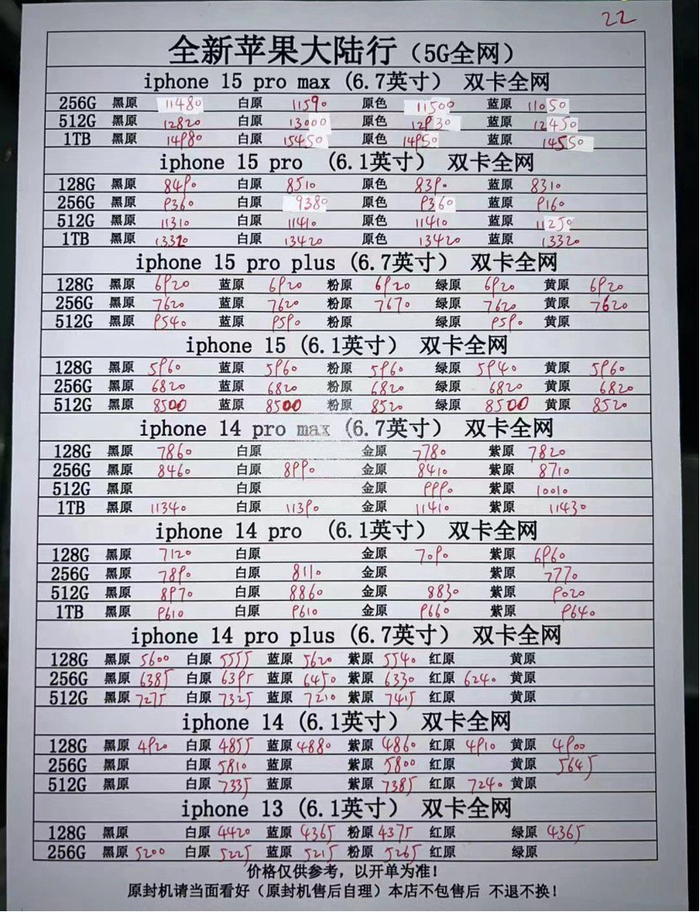 22
全新苹果大陆行（5G全网）
iphone 15 pro max (6.7英寸） 双卡全网
256G 黑原 11480 白原 11590 原色 11500 蓝原 11050
512G 黑原 12820 白原 13000 原色 12930 蓝原 12450
1TB 黑原 14980 白原 15450 原色 14950 蓝原 14550
iphone 15 pro （6.1英寸） 双卡全网
128G 黑原 8490 白原 8510 原色 8390 蓝原 8310
256G 黑原 9360 白原 9380 原色 9360 蓝原 9160
512G 黑原 11310 白原 11410 原色 11410 蓝原 11250
1TB 黑原 13320 白原 13420 原色 13420 蓝原 13320
iphone 15 pro plus (6.7英寸） 双卡全网
128G 黑原 6920 蓝原 6920 粉原 6920 绿原 6920 黄原 6920
256G 黑原 7620 蓝原 7620 粉原 7670 绿原 7620 黄原 7620
512G 黑原 9540 蓝原 9590 粉原 绿原 9590 黄原
iphone 15 (6.1英寸） 双卡全网
128G 黑原 5960 蓝原 5960 粉原 5960 绿原 5940 黄原 5960
256G 黑原 6820 蓝原 6820 粉原 6820 绿原 6820 黄原 6820
512G 黑原 8500 蓝原 8500 粉原 8520 绿原 8500 黄原 8520
iphone 14 pro max (6.7英寸） 双卡全网
128G 黑原 7860 白原 金原 7780 紫原 7820
256G 黑原 8460 白原 8990 金原 8410 紫原 8710
512G 黑原 白原 金原 9990 紫原 10010
1TB 黑原 11340 白原 11390 金原 11410 紫原 11430
iphone 14 pro （6.1英寸） 双卡全网
128G 黑原 7120 白原 金原 7090 紫原 6960
256G 黑原 7890 白原 8110 金原 紫原 7770
512G 黑原 8970 白原 8860 金原 8830 紫原 9020
1TB 黑原 9610 白原 9610 金原 9660 紫原 9640
iphone 14 pro plus (6.7英寸） 双卡全网
128G 黑原 5600 白原 5555 蓝原 5620 紫原 5540 红原 黄原
256G 黑原 6385 白原 6395 蓝原 6450 紫原 6330 红原 6240 黄原
512G 黑原 7275 白原 7325 蓝原 7210 紫原 7415 红原 黄原
iphone 14 (6.1英寸） 双卡全网
128G 黑原 4920 白原 4855 蓝原 4880 紫原 4860 红原 4910 黄原 4900
256G 黑原 白原 5810 蓝原 紫原 5800 红原 黄原 5645
512G 黑原 白原 7335 蓝原 紫原 7385 红原 7240 黄原
iphone 13 (6.1英寸） 双卡全网
128G 黑原 白原 4420 蓝原 4365 粉原 4375 红原 绿原 4365
256G 黑原 5200 白原 5225 蓝原 5215 粉原 5265 红原 绿原
价格仅供参考，以开单为准！
原封机请当面看好（原封机售后自理）本店不包售后 不退不换！